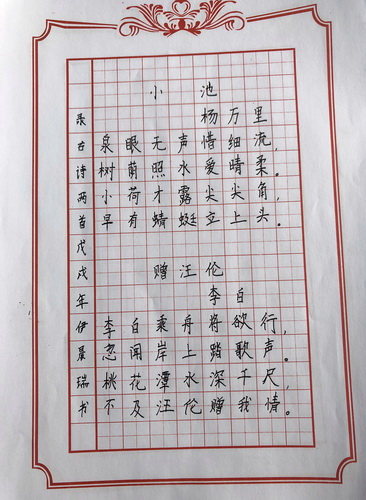 小池
杨万里
泉眼无声惜细流，
树荫照水爱晴柔。
小荷才露尖尖角，
早有蜻蜓立上头。
赠汪伦
李白
李白乘舟将欲行，
忽闻岸上踏歌声。
桃花潭水深千尺，
不及汪伦赠我情。
录古诗两首戊戌年伊晨瑞书